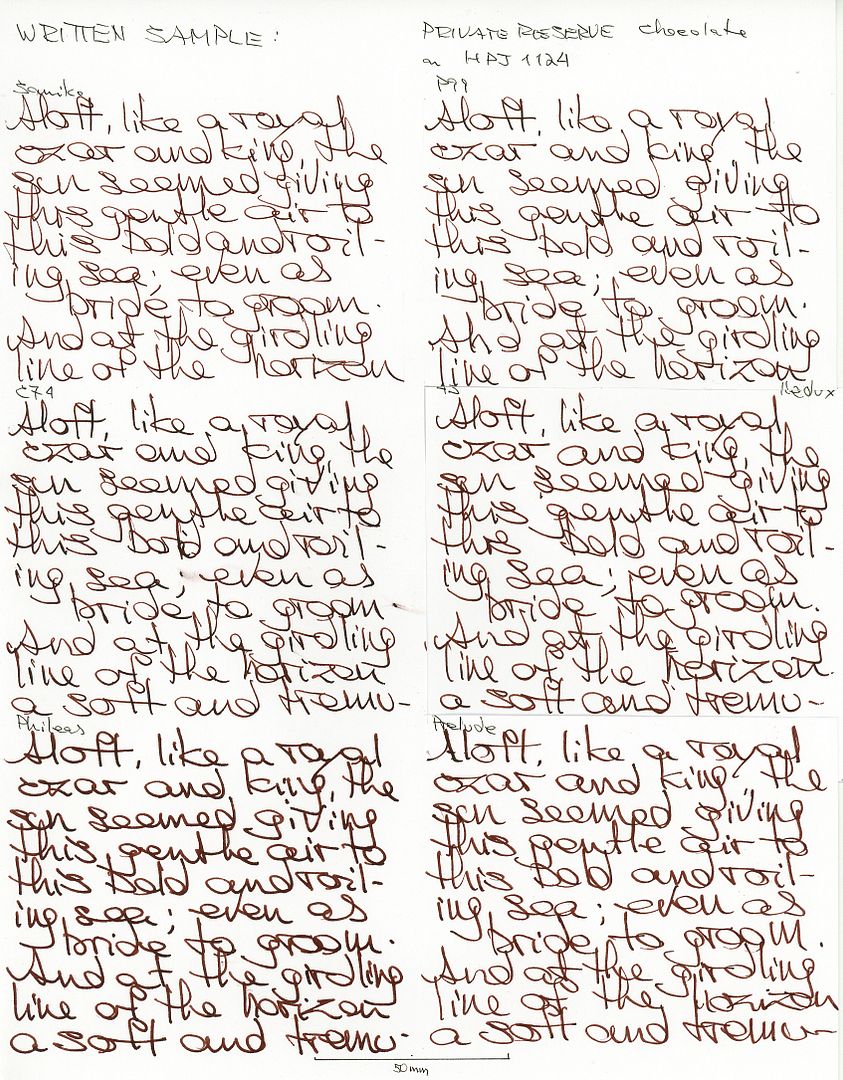 WRITTEN SAMPLE:
PRIVATE RESERVE chocolate
on HPJ 1124
Aloft, like a royal
czar and king, the
sun seemed giving
this gentle air to
this bold and roil-
ing sea; even as
bride to groom.
And at the girdling
line of the horizon
P99
Aloft, like a royal
czar and king, the
sun seemed giving
this gentle air to
this bold and roil-
ing sea; even as
bride to groom.
And at the girdling
line of the horizon
C74
Aloft, like a royal
czar and king, the
sun seemed giving
this gentle air to
this bold and roil-
ing sea; even as
bride to groom
And at the girdling
line of the horizon
a soft and tremu-
Redux
Aloft, like a royal
czar and king, the
sun seemed giving
this gentle air to
this bold and roil-
ing sea; even as
bride to groom.
And at the girdling
line of the horizon.
a soft and tremu-
Phileas
Aloft, like a royal
czar and king, the
sun seemed giving
this gentle air to
this bold and roil-
ing sea; even as
bride to groom.
And at the girdling
line of the horizon
a soft and tremu-
Prelude
Aloft, like a royal
czar and king, the
sun seemed giving
this gentle air to
this bold and roil-
ing sea; even as
bride to groom.
And at the girdling
line of the horizon
a soft and tremu-
50 mm